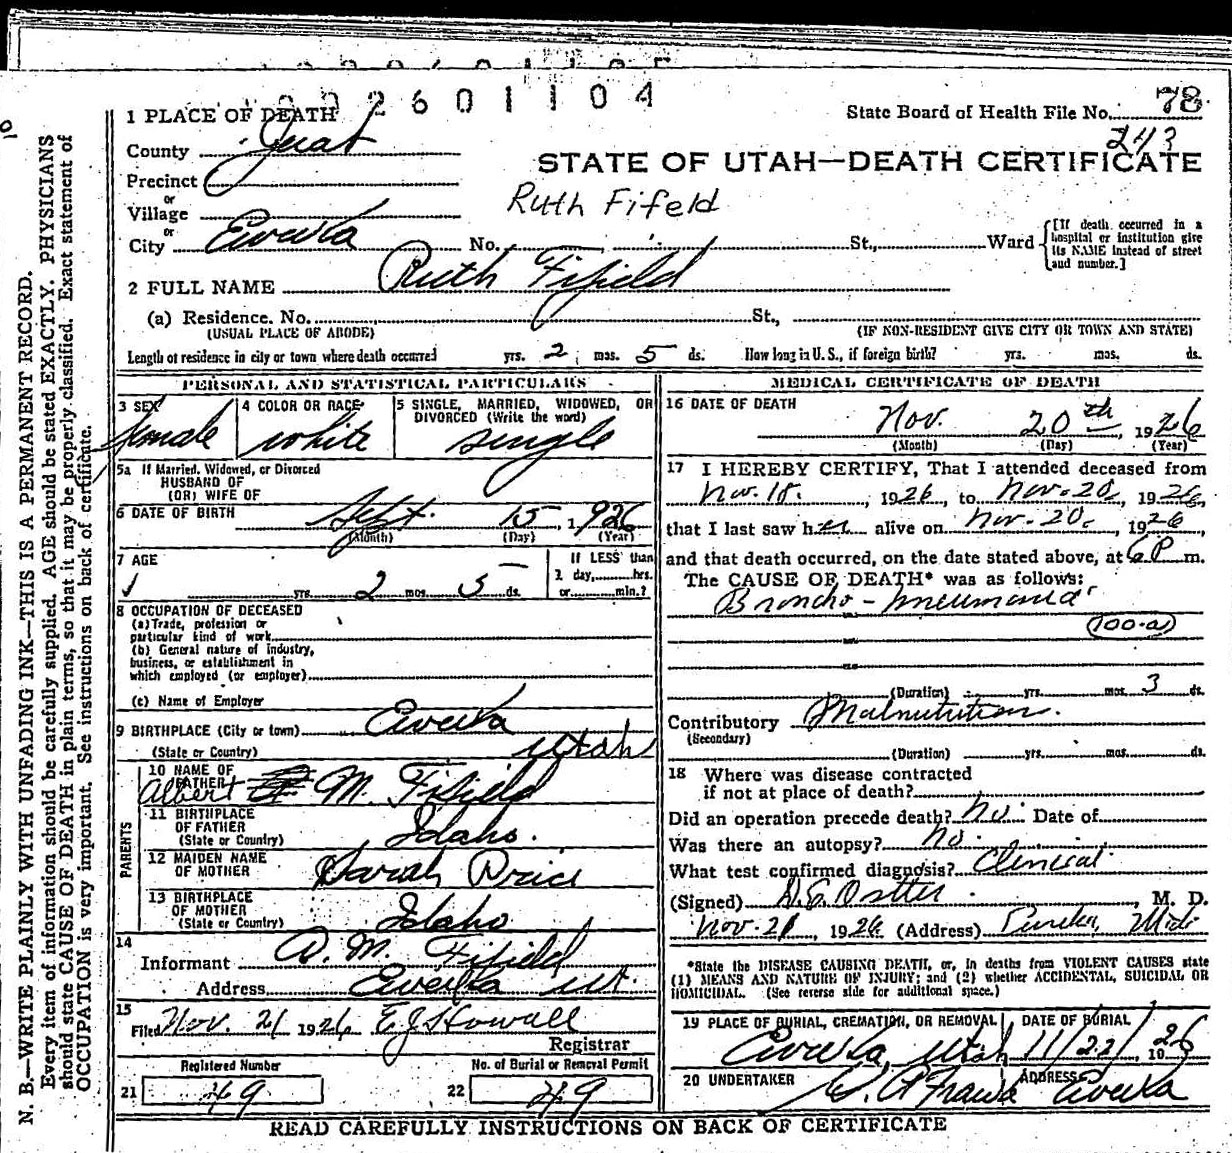 2601104
1 PLACE OF DEATH
State Board of Health File No. 78
243
County Juab
STATE OF UTAH—DEATH CERTIFICATE
Precinct
or
Village
Ruth Fifeld
or
City Eureka No. St., Ward
[If death occurred in a hospital or institution give its NAME instead of street and number.]
2 FULL NAME Ruth Fifield
(a) Residence. No. St.,
(USUAL PLACE OF ABODE) (IF NON-RESIDENT GIVE CITY OR TOWN AND STATE)
Length of residence in city or town where death occurred yrs. 2 mos. 5 ds. How long in U. S., if foreign birth? yrs. mos. ds.
PERSONAL AND STATISTICAL PARTICULARS
3 SEX female
4 COLOR OR RACE white
5 SINGLE, MARRIED, WIDOWED, OR DIVORCED (Write the word) single
5a If Married, Widowed, or Divorced
HUSBAND OF
(OR) WIFE OF
6 DATE OF BIRTH Sept. 15, 1926
(Month) (Day) (Year)
7 AGE
yrs. 2 mos. 5 ds.
If LESS than
1 day, hrs.
or min.?
8 OCCUPATION OF DECEASED
(a) Trade, profession or
particular kind of work
(b) General nature of industry,
business, or establishment in
which employed (or employer)
(c) Name of Employer
9 BIRTHPLACE (City or town) Eureka
(State or Country) Utah
PARENTS
10 NAME OF
FATHER Albert M. Fifield
11 BIRTHPLACE
OF FATHER
(State or Country) Idaho.
12 MAIDEN NAME
OF MOTHER Sarah Price
13 BIRTHPLACE
OF MOTHER
(State or Country) Idaho
14
Informant A. M. Fifield
Address Eureka Ut.
15
Filed Nov. 21 1926 E J Howell
Registrar
Registered Number
21 49
No. of Burial or Removal Permit
22 49
MEDICAL CERTIFICATE OF DEATH
16 DATE OF DEATH
Nov. 20th, 1926
(Month) (Day) (Year)
17 I HEREBY CERTIFY, That I attended deceased from
Nov. 18. 1926 to Nov-20, 1926,
that I last saw her alive on Nov-20. 1926
and that death occurred, on the date stated above, at 6 P m.
The CAUSE OF DEATH* was as follows:
Broncho-pneumonia
100-a
(Duration) yrs. mos. 3 ds.
Contributory Malnutrition.
(Secondary)
(Duration) yrs. mos. ds.
18 Where was disease contracted
if not at place of death?
Did an operation precede death? No. Date of
Was there an autopsy? No.
What test confirmed diagnosis? Clinical.
(Signed) M. D.
Nov-21, 1926 (Address) Eureka,
*State the DISEASE CAUSING DEATH, or, in deaths from VIOLENT CAUSES state
(1) MEANS AND NATURE OF INJURY; and (2) whether ACCIDENTAL, SUICIDAL OR
HOMICIDAL. (See reverse side for additional space.)
19 PLACE OF BURIAL, CREMATION, OR REMOVAL DATE OF BURIAL
Eureka, Utah 11/22/, 1926
20 UNDERTAKER ADDRESS
Eureka
READ CAREFULLY INSTRUCTIONS ON BACK OF CERTIFICATE
N. B.—WRITE PLAINLY WITH UNFADING INK—THIS IS A PERMANENT RECORD.
Every item of information should be carefully supplied. AGE should be stated EXACTLY. PHYSICIANS
should state CAUSE OF DEATH in plain terms, so that it may be properly classified. Exact statement of
OCCUPATION is very important. See instructions on back of certificate.